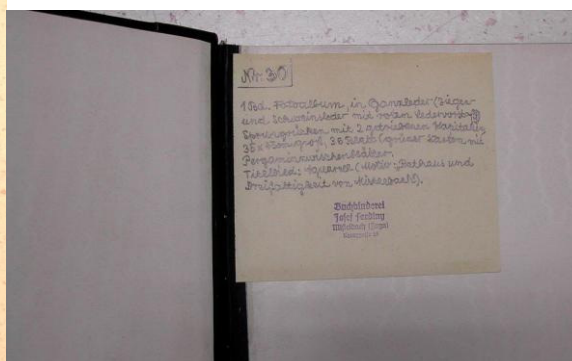 Nr. 30
1 Bd. Fotoalbum, in Ganzleder (Ziegen
und Schweinsleder mit rotem Ledervorsatz)
Sprungrücken mit 2 getriebenen
35 x cm groß, 36 Blatt (grauer Karton mit
Pergaminzwischenblätter.
Titelbild: Aquarell (Motiv: Rathaus und
Dreifaltigkeit von Mistelbach).
Buchbinderei
Josef
Mistelbach (Zaya)